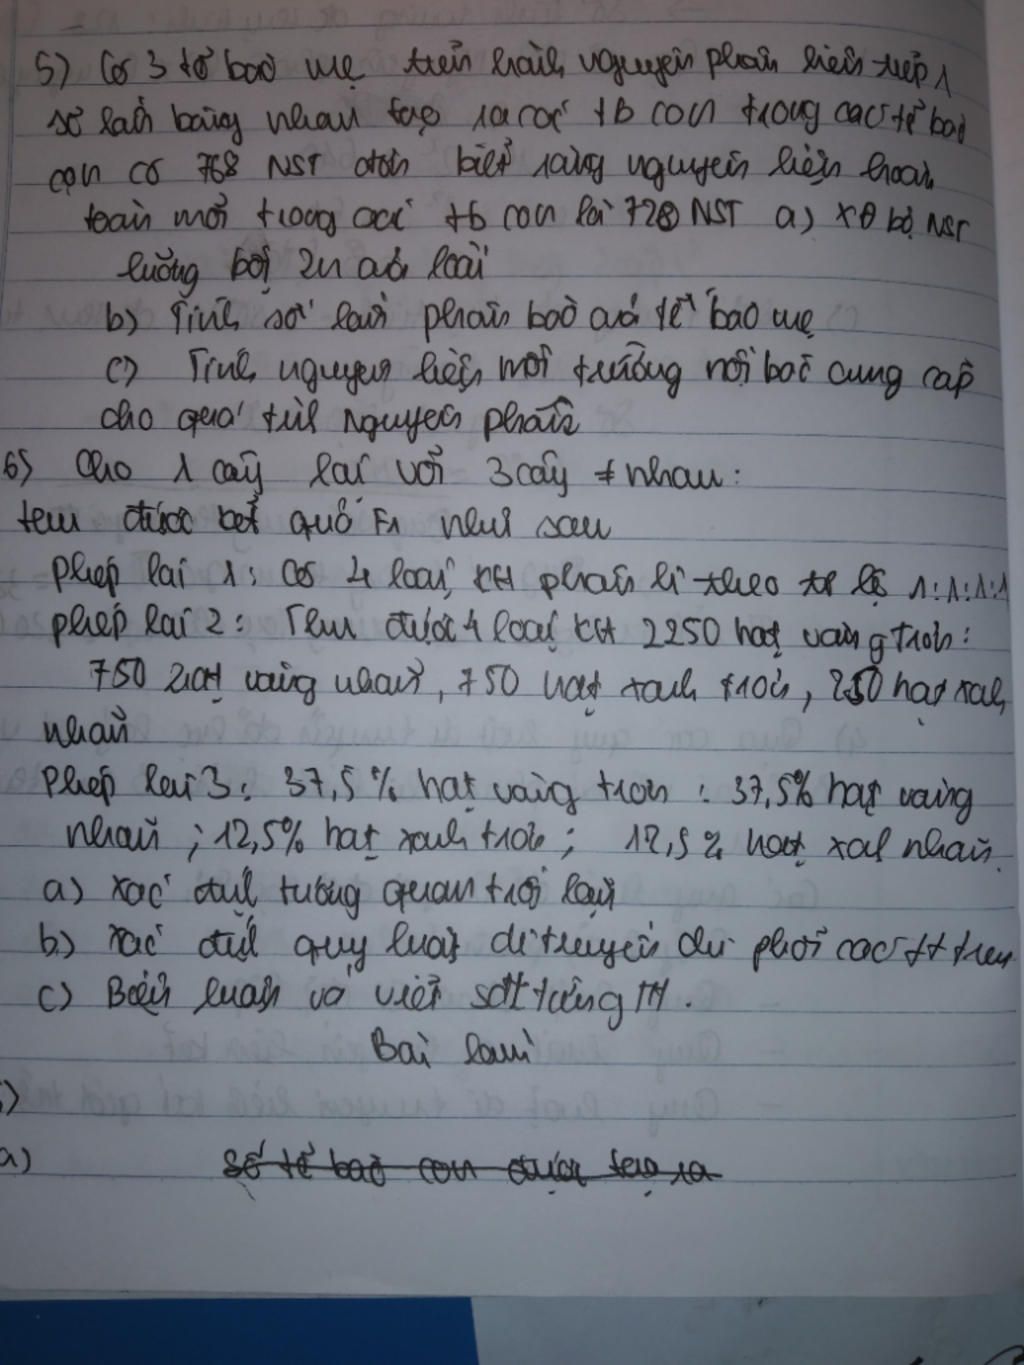 5) Có 3 tế bào mẹ tiến hành nguyên phân liên tiếp 1
số lần bằng nhau tạo ra các tb con trong các tế bào
con có 768 NST đơn biết rằng nguyên liệu hoàn
toàn mới trong các tb con là 720 NST a) XĐ bộ NST
lưỡng bội 2n của loài
b) Tính số lần phân bào của tế bào mẹ
c) Tính nguyên liệu môi trường nội bào cung cấp
cho quá trình nguyên phân
6) Cho 1 cây lai với 3 cây ≠ nhau:
tem được kết quả F1 như sau
phép lai 1: Có 4 loại KH phân li theo tỉ lệ 1:1:1:1
phép lai 2: Thu được 4 loại KH 2250 hạt vàng trơn:
750 hạt vàng nhăn, 750 hạt xanh trơn, 250 hạt xanh
nhăn
Phép lai 3: 37,5% hạt vàng trơn : 37,5% hạt vàng
nhăn ; 12,5% hạt xanh trơn ; 12,5% hạt xah nhăn.
a) xác định tương quan trội lặn
b) xác định quy luật di truyền chi phối các tt trên
c) Biện luận và viết sđl từng TH.
Bài làm
a)
Số tế bào con được tạo ra